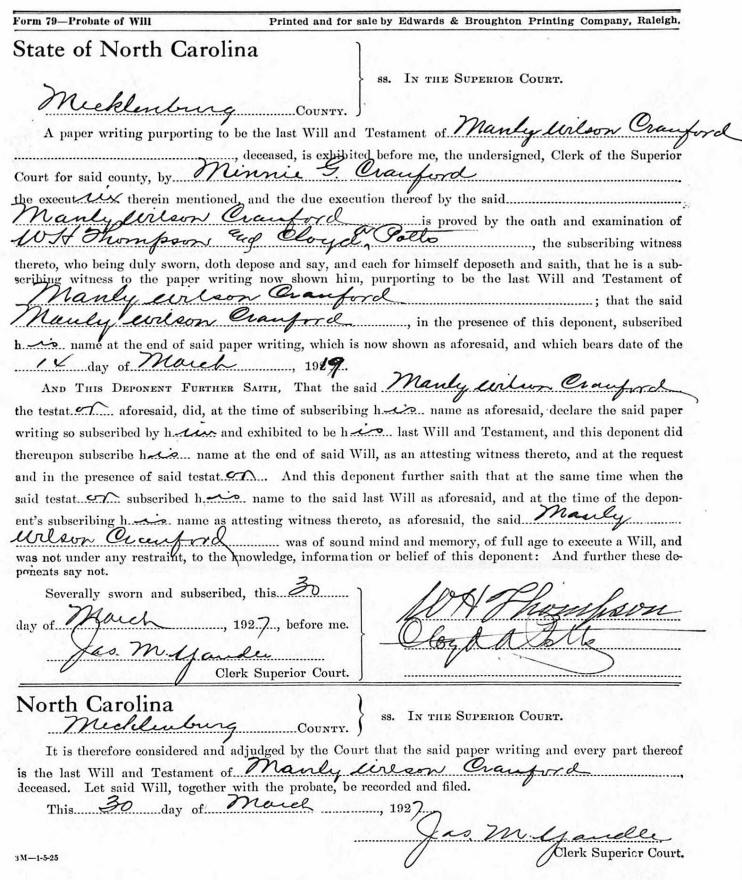 Form 79—Probate of Will Printed and for sale by Edwards & Broughton Printing Company, Raleigh.
State of North Carolina
ss. IN THE SUPERIOR COURT.
Mecklenburg COUNTY.
A paper writing purporting to be the last Will and Testament of Manly Wilson Cranford
, deceased, is exhibited before me, the undersigned, Clerk of the Superior
Court for said county, by Minnie G. Cranford
the execut rix therein mentioned, and the due execution thereof by the said
Manly Wilson Cranford is proved by the oath and examination of
W H Thompson and Cloyd A Potts, the subscribing witness
thereto, who being duly sworn, doth depose and say, and each for himself deposeth and saith, that he is a sub-
scribing witness to the paper writing now shown him, purporting to be the last Will and Testament of
Manly Wilson Cranford; that the said
Manly Wilson Cranford, in the presence of this deponent, subscribed
h is name at the end of said paper writing, which is now shown as aforesaid, and which bears date of the
14 day of March, 1919.
AND THIS DEPONENT FURTHER SAITH, That the said Manly Wilson Cranford
the testat or aforesaid, did, at the time of subscribing h is name as aforesaid, declare the said paper
writing so subscribed by h im and exhibited to be h is last Will and Testament, and this deponent did
thereupon subscribe h is name at the end of said Will, as an attesting witness thereto, and at the request
and in the presence of said testat or. And this deponent further saith that at the same time when the
said testat or subscribed h is name to the said last Will as aforesaid, and at the time of the depon-
ent's subscribing h is name as attesting witness thereto, as aforesaid, the said Manly
Wilson Cranford was of sound mind and memory, of full age to execute a Will, and
was not under any restraint, to the knowledge, information or belief of this deponent: And further these de-
ponents say not.
Severally sworn and subscribed, this 30
day of March, 1927, before me.
Jas. M. Yandle
Clerk Superior Court.
W H Thompson
Cloyd A Potts
North Carolina
Mecklenburg COUNTY.
ss. IN THE SUPERIOR COURT.
It is therefore considered and adjudged by the Court that the said paper writing and every part thereof
is the last Will and Testament of Manly Wilson Cranford,
deceased. Let said Will, together with the probate, be recorded and filed.
This 30 day of March, 1927.
Jas. M. Yandle
Clerk Superior Court.
3M—1-5-25